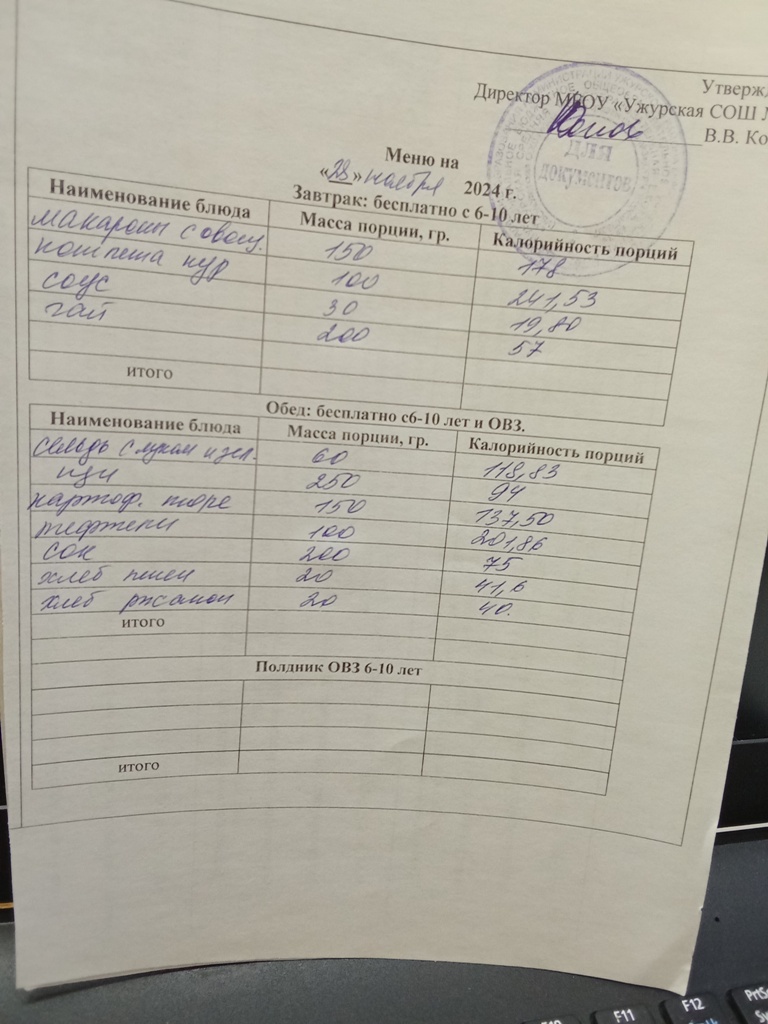 Утверж
Директор МБОУ «Ужурская СОШ
В.В. Ко
ДЛЯ
документов
Меню на
«28» ноября 2024 г.
Завтрак: бесплатно с 6-10 лет
Наименование блюда Масса порции, гр. Калорийность порций
макароны с овощ. 150 178
котлета кур 100 241,53
соус 30 19,80
чай 200 57
итого
Обед: бесплатно с6-10 лет и ОВЗ.
Наименование блюда Масса порции, гр. Калорийность порций
сельдь с луком и зел. 60 118,83
щи 250 94
картоф. пюре 150 137,50
тефтели 100 201,86
сок 200 75
хлеб пшен 20 41,6
хлеб ржаной 20 40.
итого
Полдник ОВЗ 6-10 лет
итого
F10 F11 F12 PrtSc